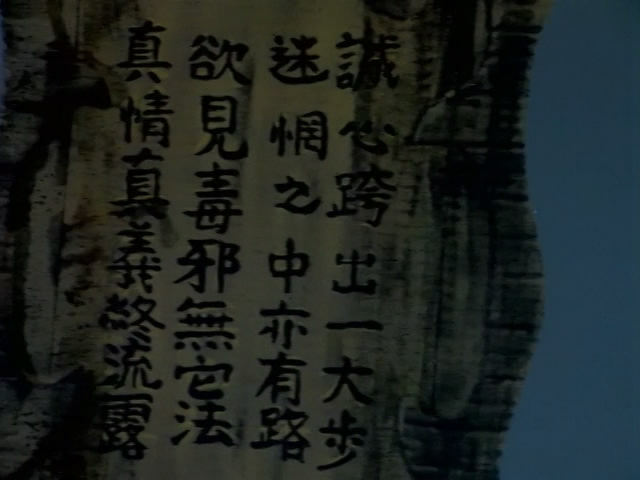 誠心跨出一大步
迷惘之中亦有路
欲見毒邪無它法
真情真義終流露